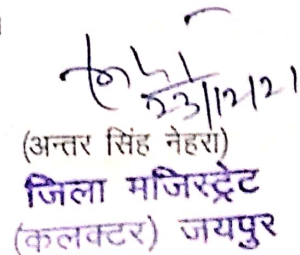 23/12/21
(अन्तर सिंह नेहरा)
जिला मजिस्ट्रेट
(कलक्टर) जयपुर